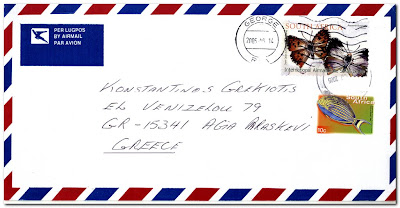 PER LUGPOS
BY AIRMAIL
PAR AVION
GEORGE
2005
14
SOUTH AFRICA
International Airmail
South Africa
10c
KONSTANTINOS GREKIOTIS
EL VENIZELOU 79
GR-15341 AGIA PARASKEVI
GREECE